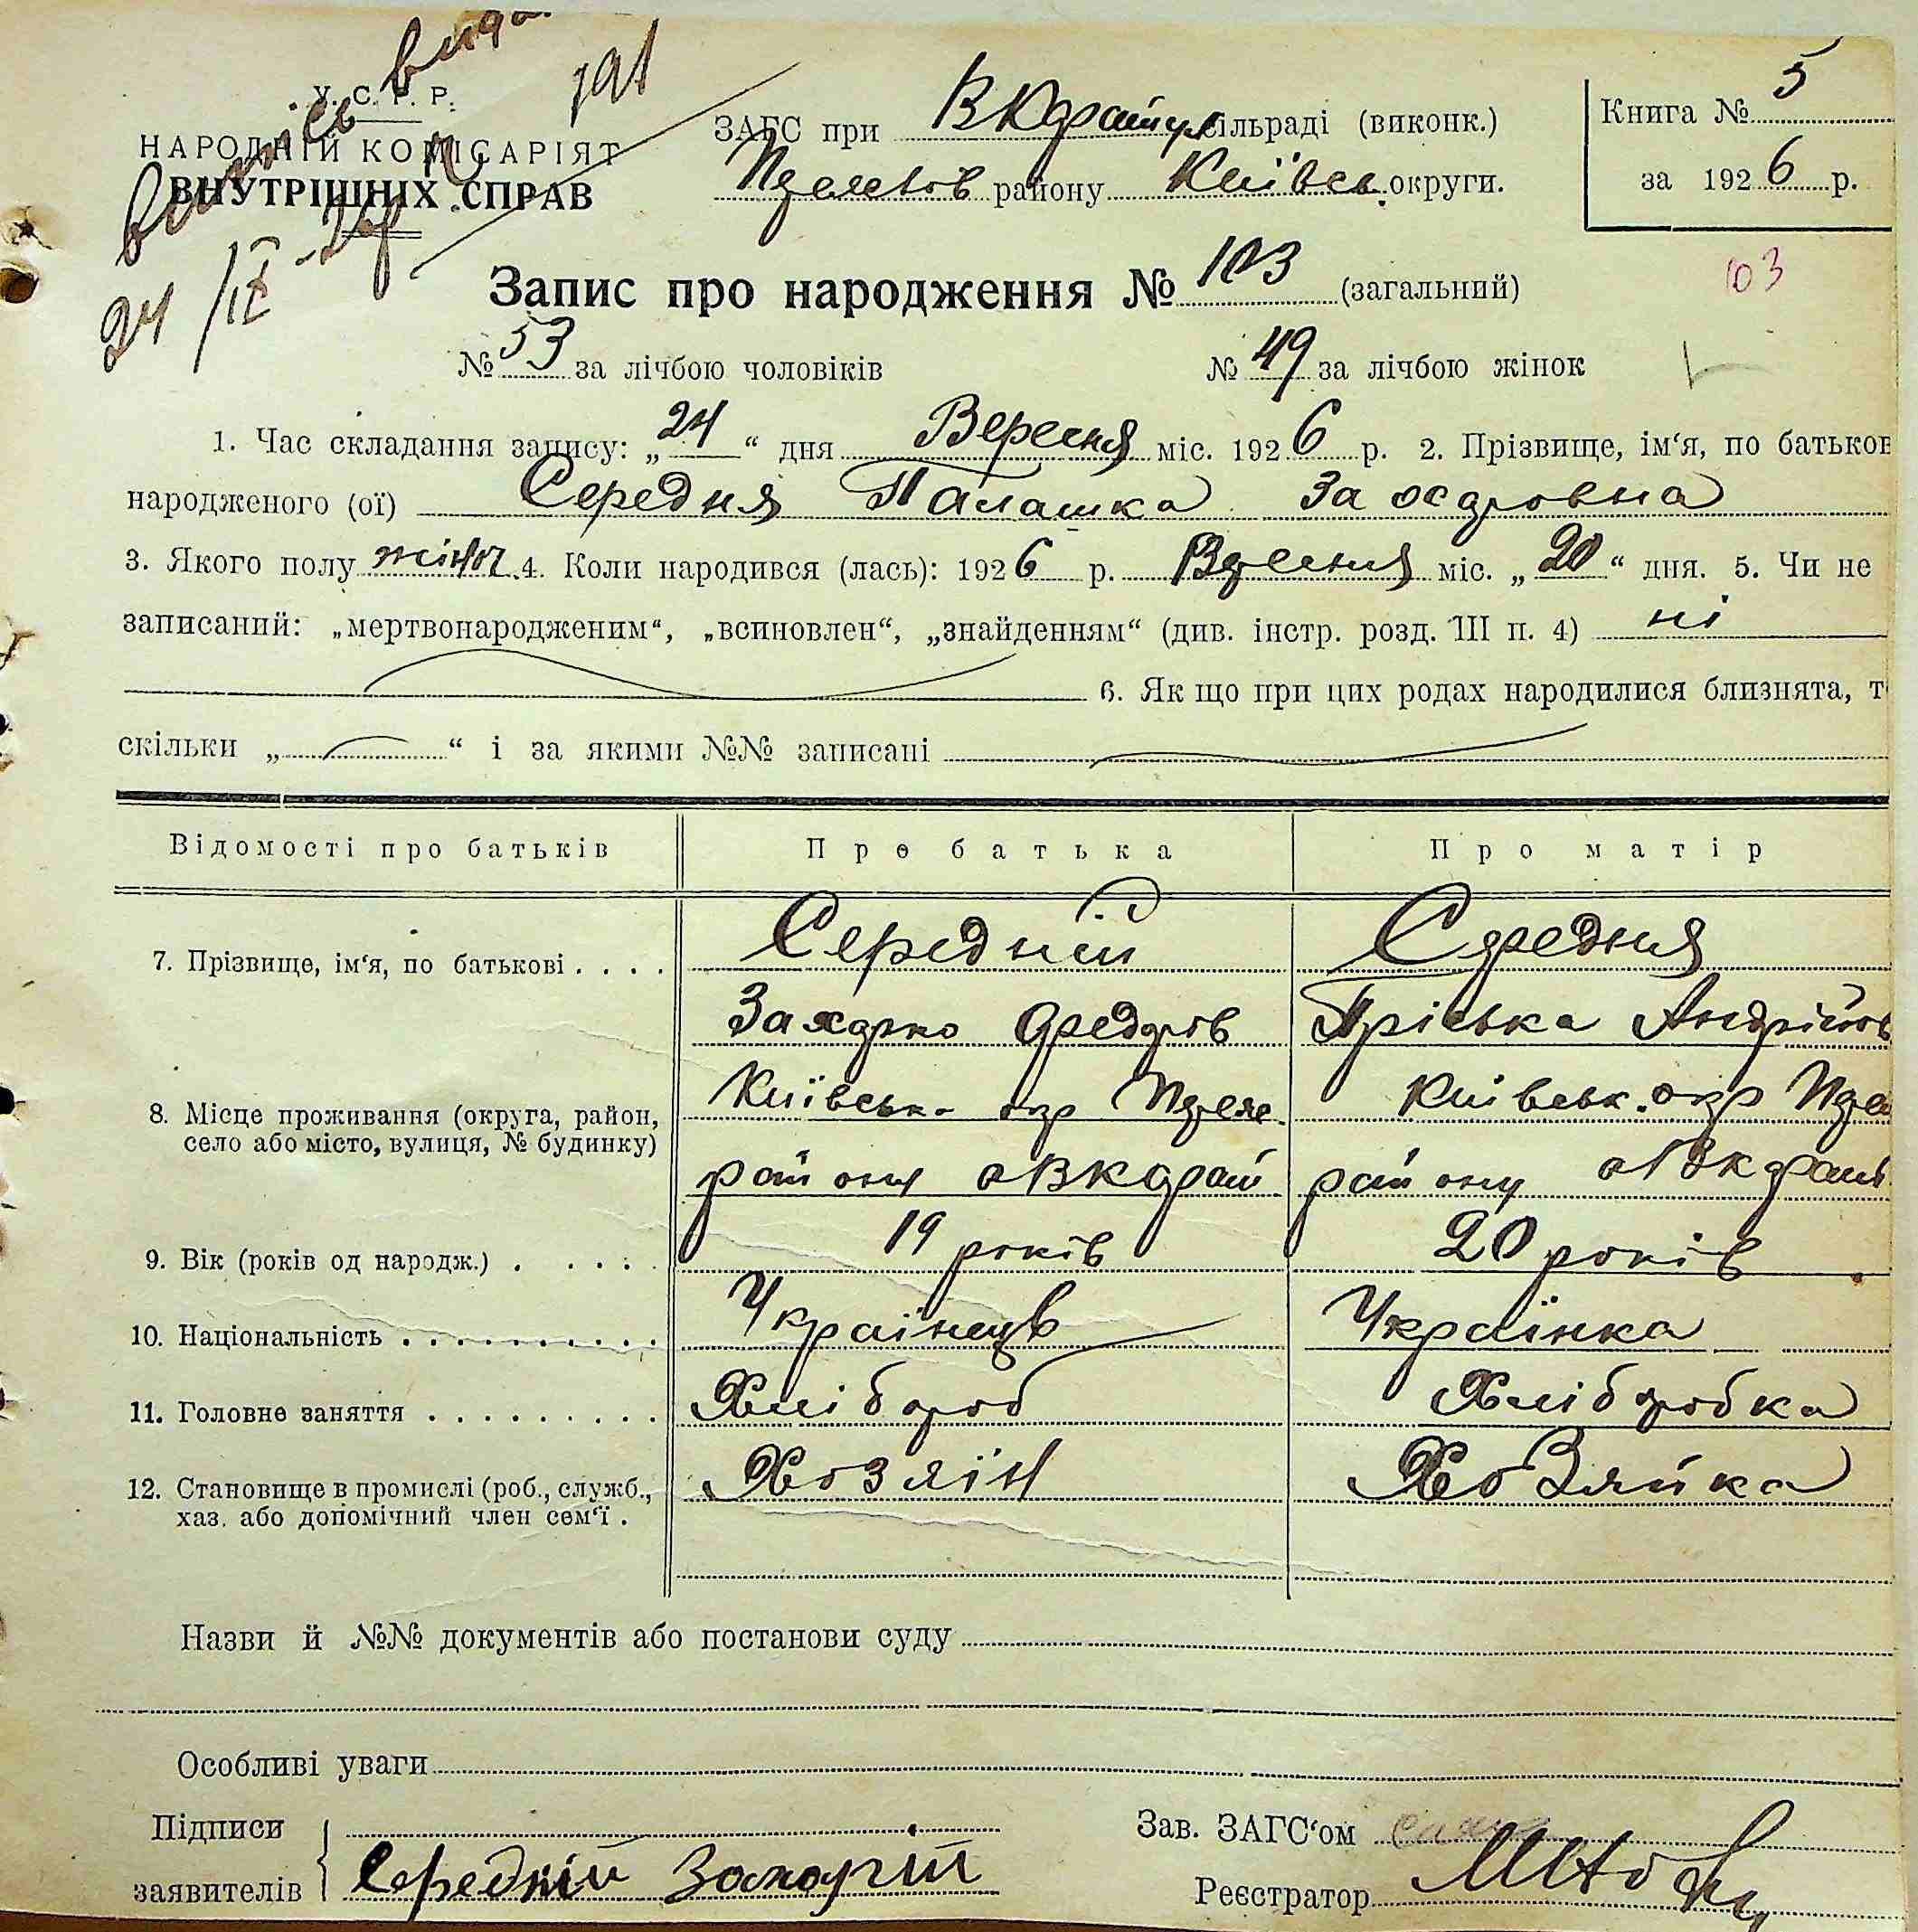 випись видана
191
У. С. Р. Р.
НАРОДНІЙ КОМІСАРІЯТ
ВНУТРІШНІХ СПРАВ
24/IX-26р
ЗАГС при В Кара сільраді (виконк.)
району Київсь округи.
Книга № 5
за 1926 р.
Запис про народження № 103 (загальний)
103
№ 53 за лічбою чоловіків № 49 за лічбою жінок
1. Час складання запису: „24“ дня Вересня міс. 1926 р. 2. Прізвище, ім‘я, по батьков
народженого (ої) Середня Палашка Захаровна
3. Якого полу жіноч. 4. Коли народився (лась): 1926 р. Вересня міс. „20“ дня. 5. Чи не
записаний: „мертвонародженим“, „всиновлен“, „знайденням“ (див. інстр. розд. III п. 4) ні
6. Як що при цих родах народилися близнята, т
скільки „ “ і за якими №№ записані
Відомості про батьків Про батька Про матір
7. Прізвище, ім‘я, по батькові . . . . Середній Середня
Захарко Федоров Пріська Андрійов
8. Місце проживання (округа, район, Київськ окр Київськ. окр
село або місто, вулиця, № будинку) району району
9. Вік (років од народж.) . . . . . 19 років 20 років
10. Національність . . . . . . . . . . Українець Українка
11. Головне заняття . . . . . . . . . . Хлібороб Хлiборобка
12. Становище в промислі (роб., служб., Хозяїн Хозяйка
хаз. або допомічний член сем‘ї .
Назви й №№ документів або постанови суду
Особливі уваги
Підписи
заявителів Середній Захарій
Зав. ЗАГС‘ом
Реєстратор